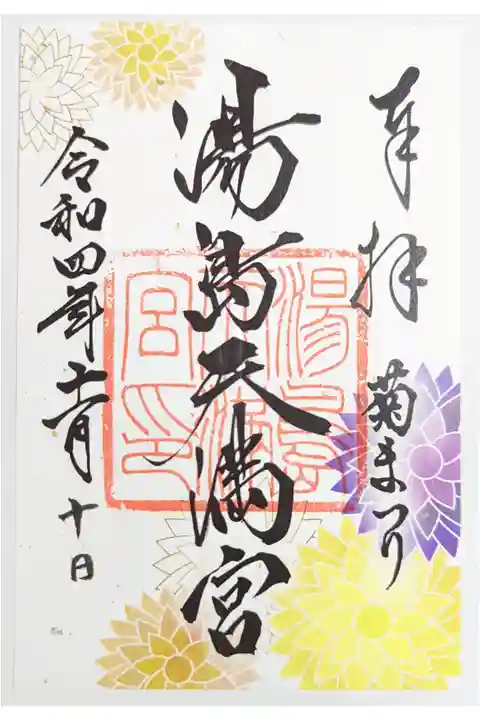 奉拝 菊まつり
湯島天満宮
令和四年十一月十日
湯島
天満
宮印